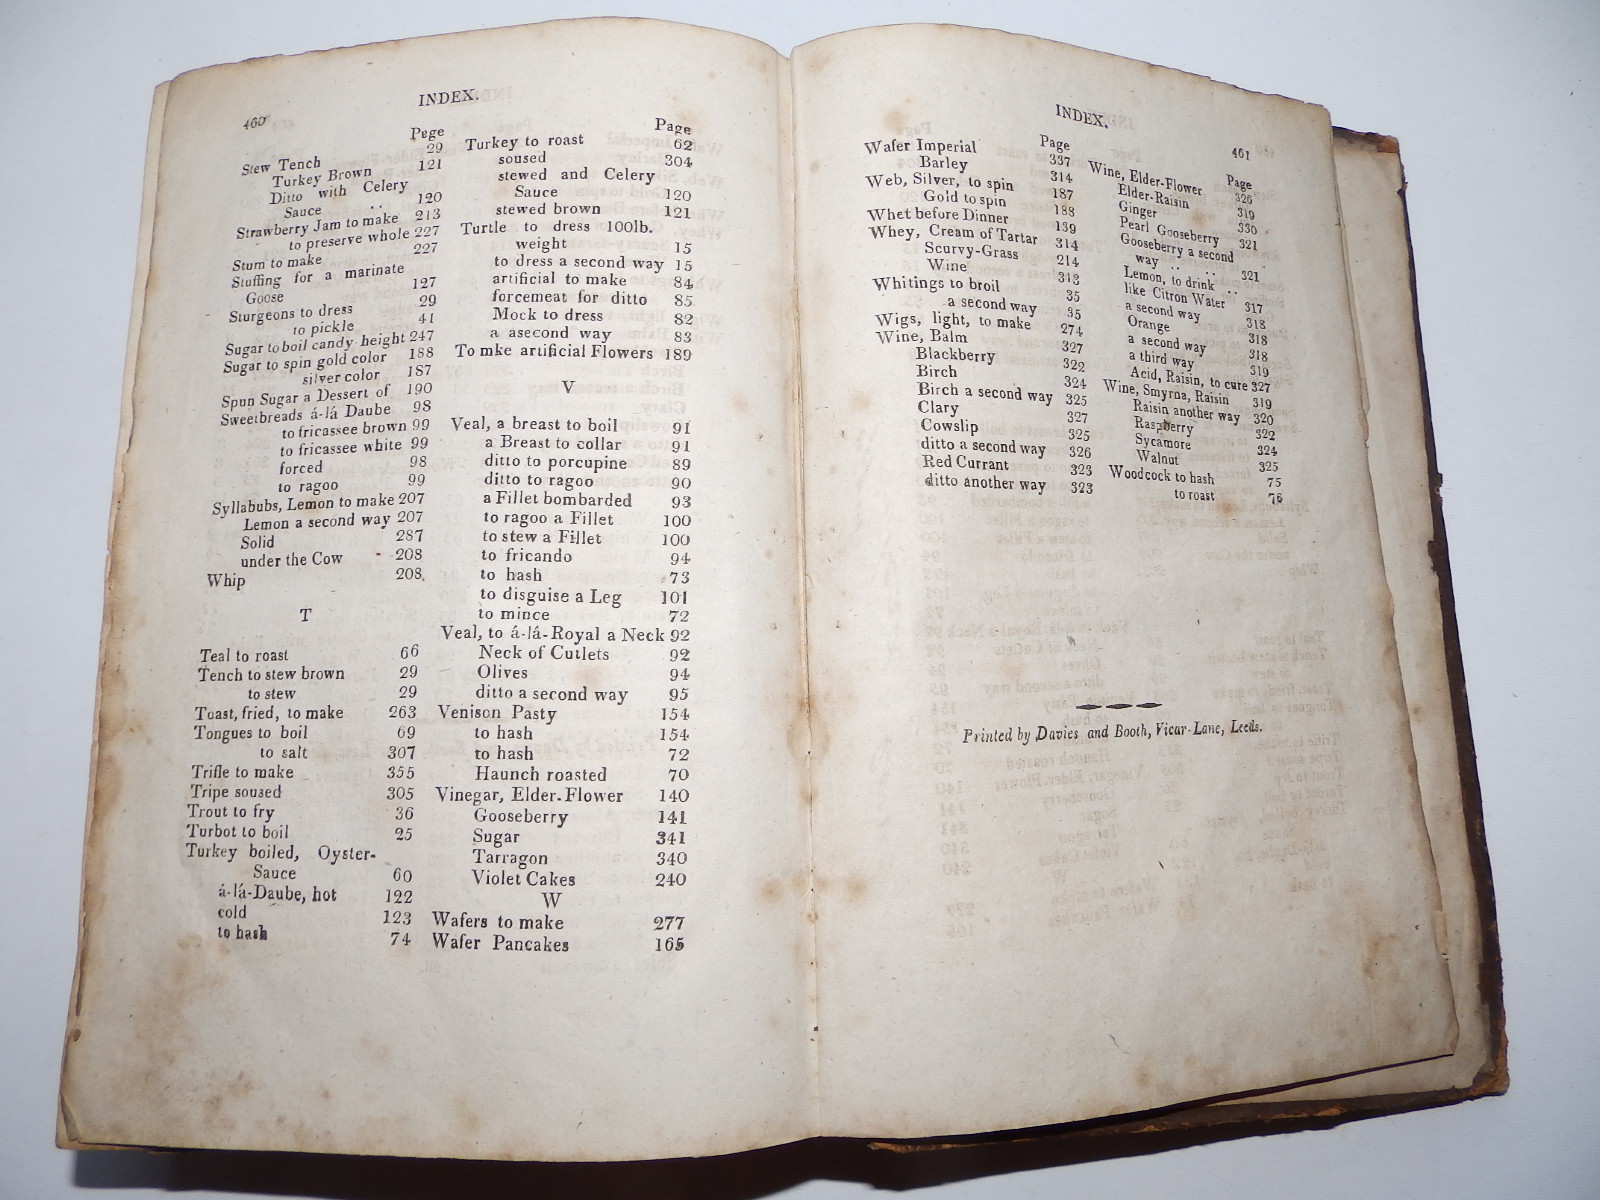 INDEX.
460
Pege
Stew Tench 29
Turkey Brown 121
Ditto with Celery
Sauce .. 120
Strawberry Jam to make 213
to preserve whole 227
Stum to make 227
Stuffing for a marinate
Goose 127
Sturgeons to dress 29
to pickle 41
Sugar to boil candy height 247
Sugar to spin gold color 188
silver color 187
Spun Sugar a Dessert of 190
Sweetbreads á-lá Daube 98
to fricassee brown 99
to fricassee white 99
forced 98
to ragoo 99
Syllabubs, Lemon to make 207
Lemon a second way 207
Solid 287
under the Cow 208
Whip 208
T
Teal to roast 66
Tench to stew brown 29
to stew 29
Toast, fried, to make 263
Tongues to boil 69
to salt 307
Trifle to make 355
Tripe soused 305
Trout to fry 36
Turbot to boil 25
Turkey boiled, Oyster-
Sauce 60
á-lá-Daube, hot 122
cold 123
to hash 74
Page
Turkey to roast 62
soused 304
stewed and Celery
Sauce 120
stewed brown 121
Turtle to dress 100lb.
weight 15
to dress a second way 15
artificial to make 84
forcemeat for ditto 85
Mock to dress 82
a asecond way 83
To mke artificial Flowers 189
V
Veal, a breast to boil 91
a Breast to collar 91
ditto to porcupine 89
ditto to ragoo 90
a Fillet bombarded 93
to ragoo a Fillet 100
to stew a Fillet 100
to fricando 94
to hash 73
to disguise a Leg 101
to mince 72
Veal, to á-lá-Royal a Neck 92
Neck of Cutlets 92
Olives 94
ditto a second way 95
Venison Pasty 154
to hash 154
to hash 72
Haunch roasted 70
Vinegar, Elder-Flower 140
Gooseberry 141
Sugar 341
Tarragon 340
Violet Cakes 240
W
Wafers to make 277
Wafer Pancakes 165
INDEX.
461
Page
Wafer Imperial 337
Barley 314
Web, Silver, to spin 187
Gold to spin 188
Whet before Dinner 139
Whey, Cream of Tartar 314
Scurvy-Grass 214
Wine 313
Whitings to broil 35
a second way 35
Wigs, light, to make 274
Wine, Balm 327
Blackberry 322
Birch 324
Birch a second way 325
Clary 327
Cowslip 325
ditto a second way 326
Red Currant 323
ditto another way 323
Page
Wine, Elder-Flower 326
Elder-Raisin 319
Ginger 330
Pearl Gooseberry 321
Gooseberry a second
way .. .. 321
Lemon, to drink ..
like Citron Water 317
a second way 318
Orange 318
a second way 318
a third way 319
Acid, Raisin, to cure 327
Wine, Smyrna, Raisin 319
Raisin another way 320
Raspberry 322
Sycamore 324
Walnut 325
Woodcock to hash 75
to roast 76
Printed by Davies and Booth, Vicar-Lane, Leeds.